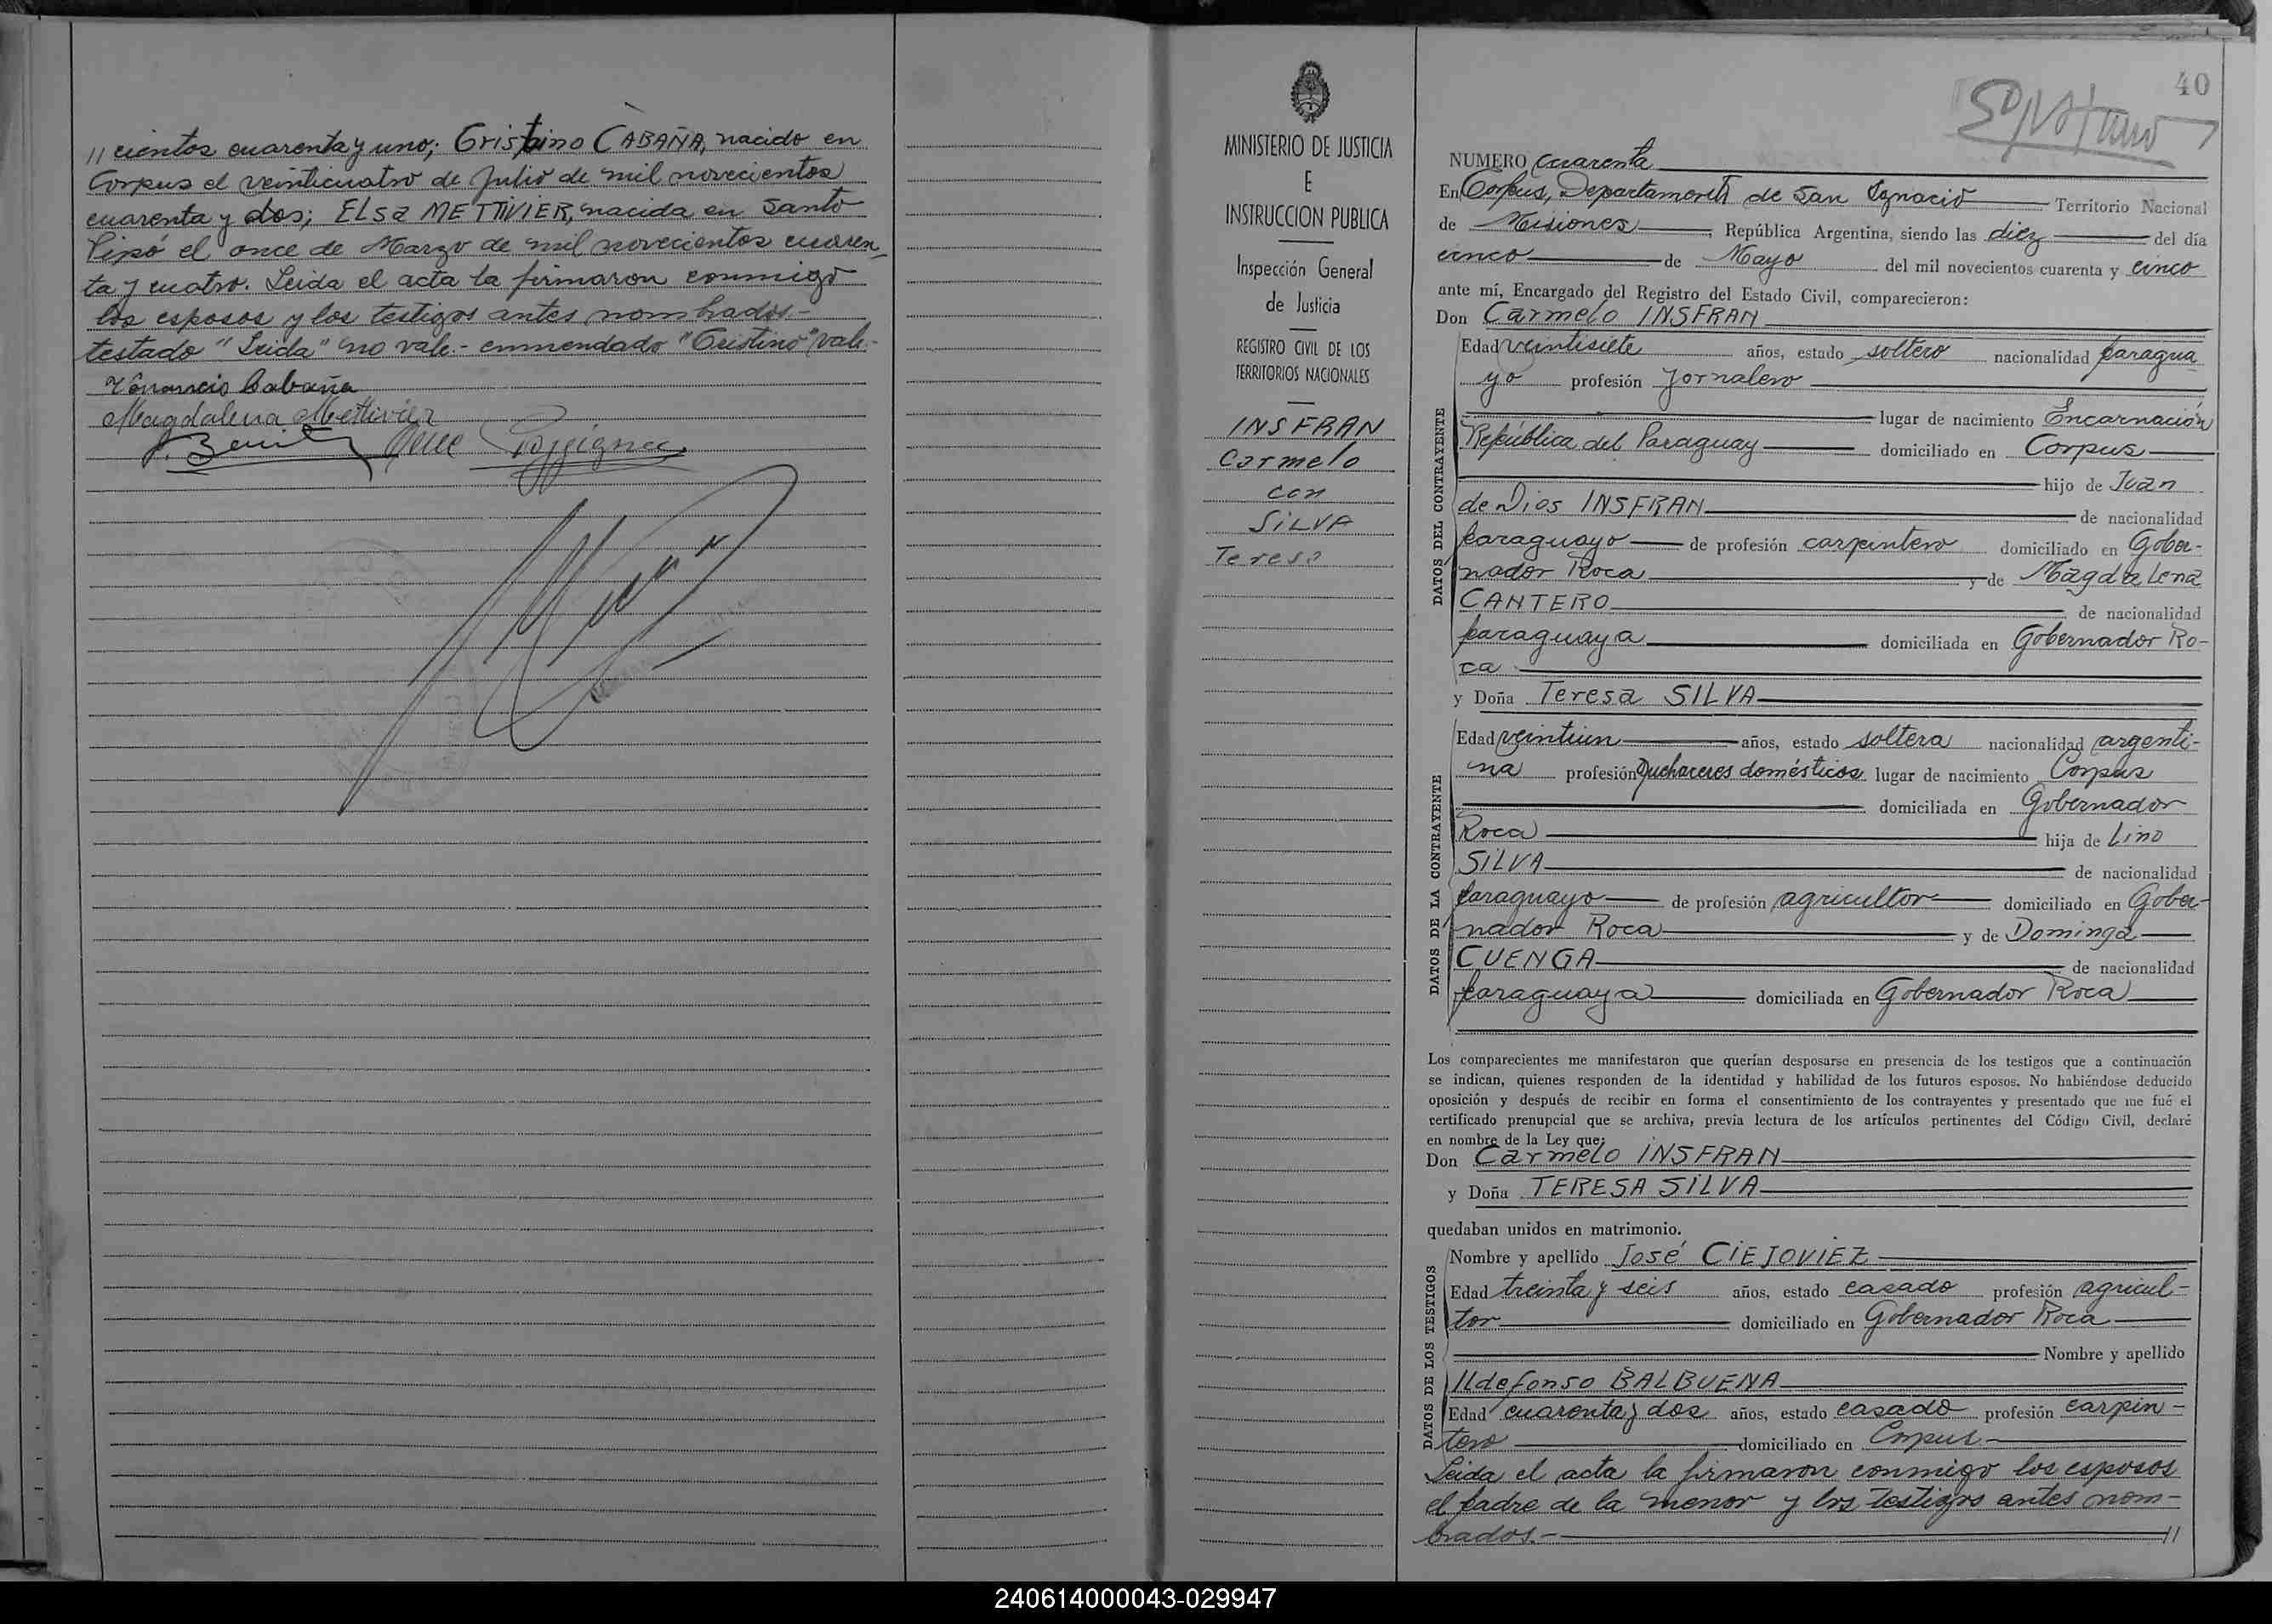 // cientos cuarenta y uno; Cristino CABAÑA, nacido en
Corpus el veinticuatro de Julio de mil novecientos
cuarenta y dos; ELSA METTIVIER, nacida en Santo
Pipó el once de Marzo de mil novecientos cuaren-
ta y cuatro. Leida el acta la firmaron conmigo
los esposos y los testigos antes nombrados.-
testado "Leida" no vale.- enmendado "Cristino" vale.-
Venancio Cabaña
Magdalena Mettivier
MINISTERIO DE JUSTICIA
E
INSTRUCCION PUBLICA
Inspección General
de Justicia
REGISTRO CIVIL DE LOS
TERRITORIOS NACIONALES
INSFRAN
Carmelo
con
SILVA
Teresa
40
NUMERO Cuarenta
En Corpus, Departamento de San Ignacio Territorio Nacional
de Misiones, República Argentina, siendo las diez del día
cinco de Mayo del mil novecientos cuarenta y cinco
ante mí, Encargado del Registro del Estado Civil, comparecieron:
Don Carmelo INSFRAN
DATOS DEL CONTRAYENTE
Edad veintisiete años, estado soltero nacionalidad paragua
yo profesión Jornalero
lugar de nacimiento Encarnación
República del Paraguay domiciliado en Corpus
hijo de Juan
de Dios INSFRAN de nacionalidad
paraguayo de profesión carpintero domiciliado en Gober-
nador Roca y de Magdalena
CANTERO de nacionalidad
paraguaya domiciliada en Gobernador Ro-
ca
y Doña Teresa SILVA
DATOS DE LA CONTRAYENTE
Edad veintiun años, estado soltera nacionalidad argenti-
na profesión Quehaceres domésticos lugar de nacimiento Corpus
domiciliada en Gobernador
Roca hija de Lino
SILVA de nacionalidad
paraguayo de profesión agricultor domiciliado en Gober-
nador Roca y de Dominga
CUENGA de nacionalidad
paraguaya domiciliada en Gobernador Roca
Los comparecientes me manifestaron que querían desposarse en presencia de los testigos que a continuación
se indican, quienes responden de la identidad y habilidad de los futuros esposos. No habiéndose deducido
oposición y después de recibir en forma el consentimiento de los contrayentes y presentado que me fué el
certificado prenupcial que se archiva, previa lectura de los artículos pertinentes del Código Civil, declaré
en nombre de la Ley que:
Don Carmelo INSFRAN
y Doña TERESA SILVA
quedaban unidos en matrimonio.
DATOS DE LOS TESTIGOS
Nombre y apellido José CIEJOVIEZ
Edad treinta y seis años, estado casado profesión agricul-
tor domiciliado en Gobernador Roca
Nombre y apellido
Ildefonso BALBUENA
Edad cuarenta y dos años, estado casado profesión carpin-
tero domiciliado en Corpus.-
Leida el acta la firmaron conmigo los esposos
el padre de la menor y los testigos antes nom-
brados.- //
240614000043-029947